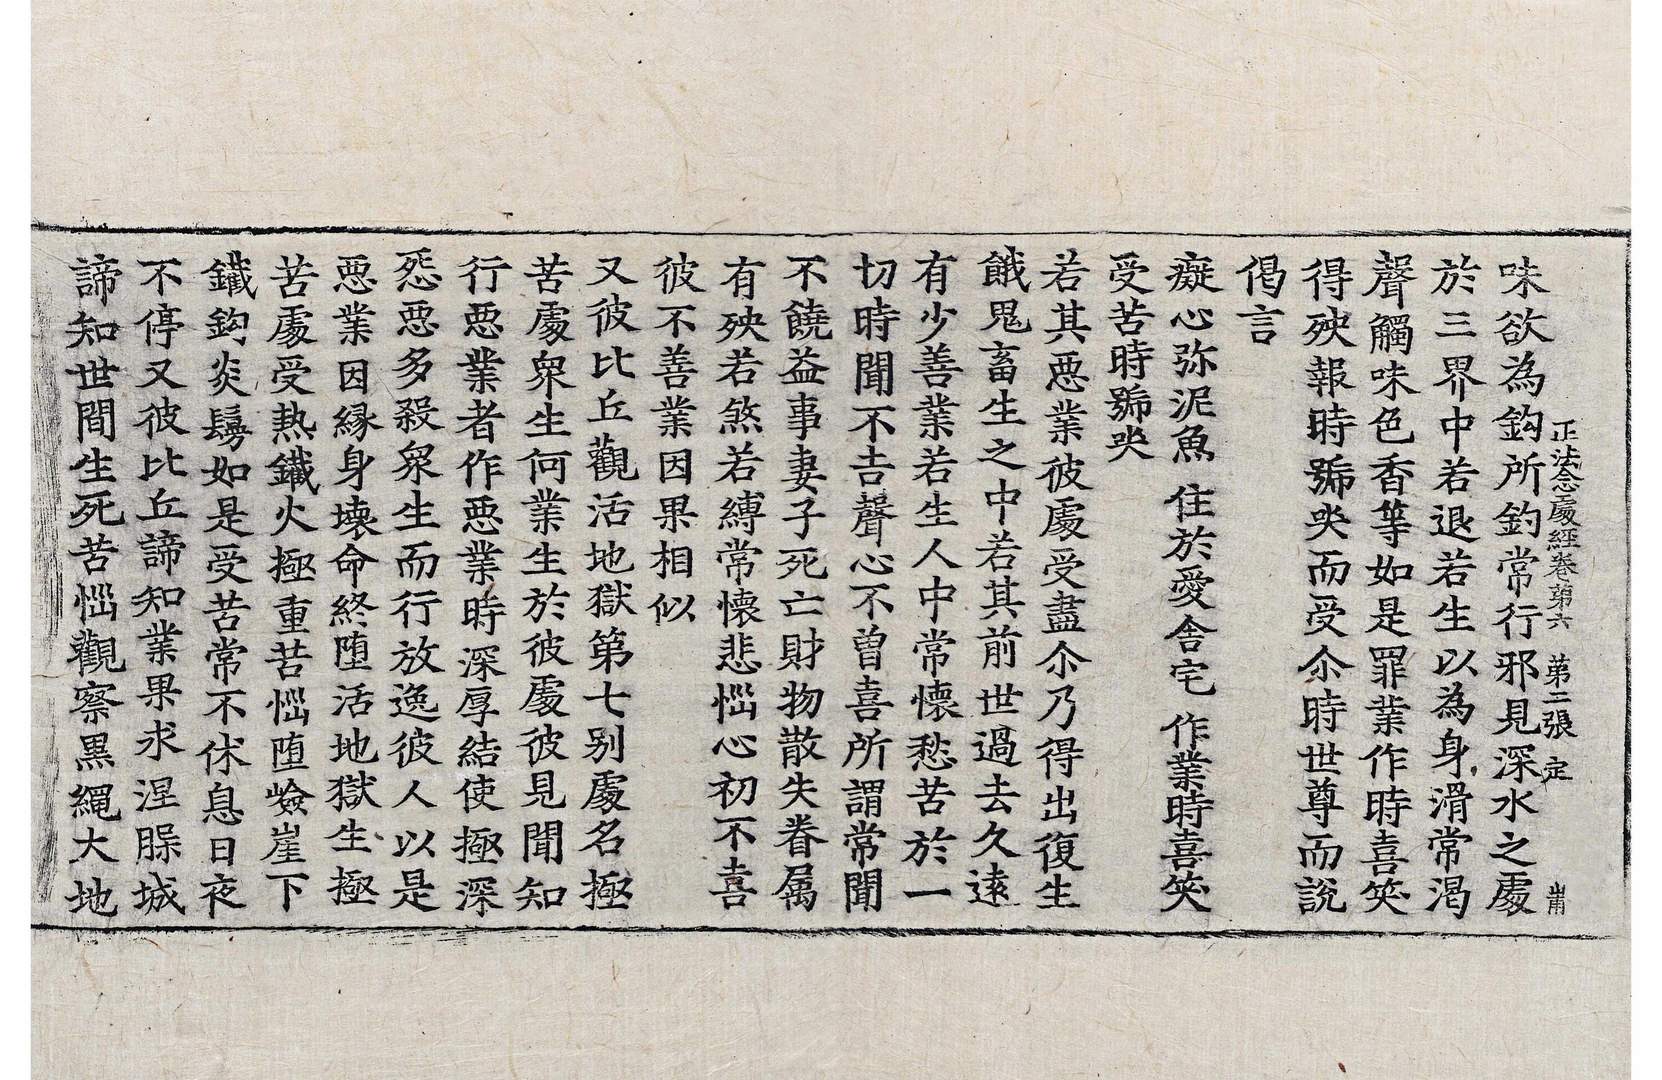 正法念處經卷第六 第二張 定
味欲為鈎所釣常行邪見深水之處
於三界中若退若生以為身滑常渴
聲觸味色香等如是罪業作時喜笑
得殃報時號哭而受尒時世尊而說
偈言
癡心弥泥魚 住於愛舍宅 作業時喜笑
受苦時號哭
若其惡業彼處受盡尒乃得出復生
餓鬼畜生之中若其前世過去久遠
有少善業若生人中常懷愁苦於一
切時聞不吉聲心不曾喜所謂常聞
不饒益事妻子死亡財物散失眷属
有殃若煞若縛常懷悲惱心初不喜
彼不善業因果相似
又彼比丘觀活地獄第七别處名極
苦處衆生何業生於彼處彼見聞知
行惡業者作惡業時深厚結使極深
怨惡多殺衆生而行放逸彼人以是
惡業因緣身壞命終堕活地獄生極
苦處受热鐵火極重苦惱堕嶮崖下
鐵鈎炎鬘如是受苦常不休息日夜
不停又彼比丘諦知業果求涅槃城
諦知世間生死苦惱觀察黑繩大地